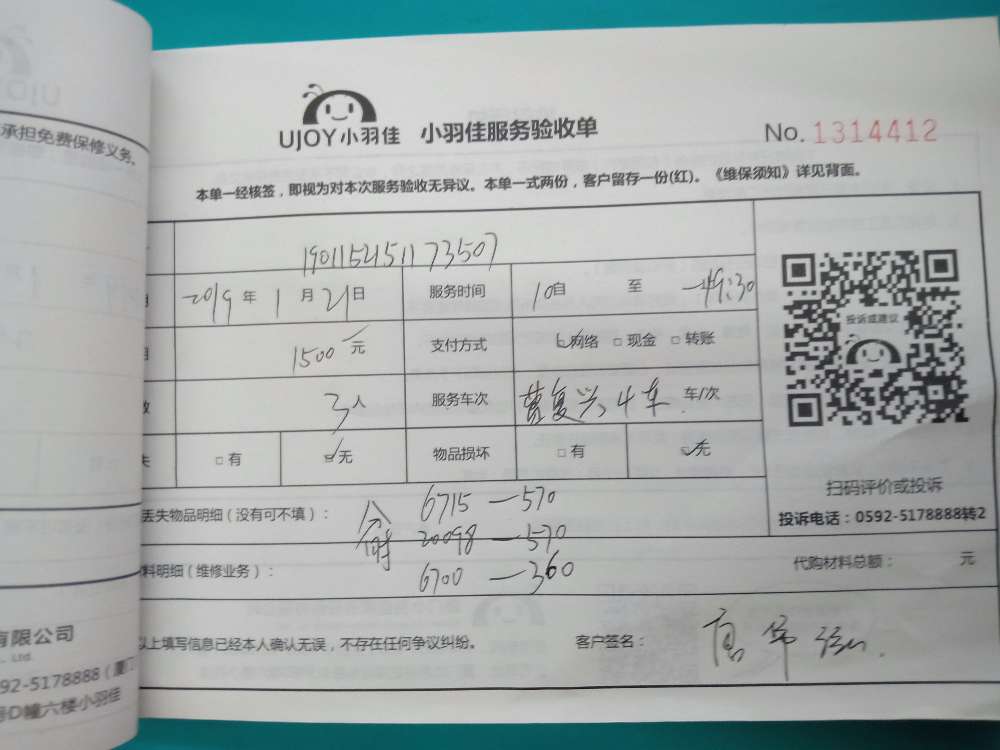 UJOY
承担免费保修义务.
有限公司
., Ltd.
92-5178888 (厦门
号D幢六楼小羽佳
UJOY小羽佳 小羽佳服务验收单
No. 1314412
本单一经核签，即视为对本次服务验收无异议。本单一式两份，客户留存一份(红)。《维保须知》详见背面。
190115451173507
2019 年 1 月 21 日 服务时间 10 自 至 19:30
1500 元 支付方式 网络 现金 转账
3人 服务车次 4车 车/次
有 无 物品损坏 有 无
丢失物品明细（没有可不填）： 6715—570
20098—570
料明细（维修业务）： 6700—360
代购材料总额： 元
以上填写信息已经本人确认无误，不存在任何争议纠纷。 客户签名：
投诉或建议
扫码评价或投诉
投诉电话：0592-5178888转2